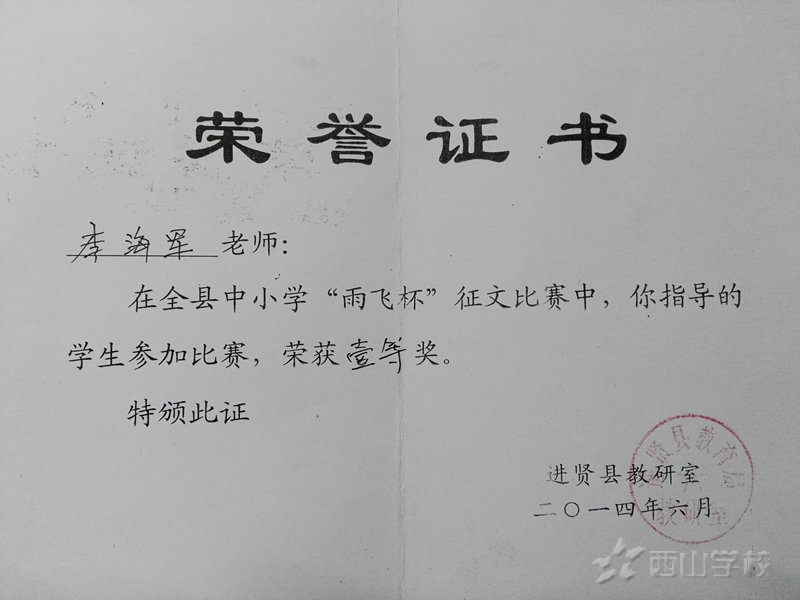 荣誉证书
李海军 老师：
在全县中小学“雨飞杯”征文比赛中，你指导的
学生参加比赛，荣获壹等奖。
特颁此证
进贤县教研室
二〇一四年六月
进贤县教育局
教研室
西山学校